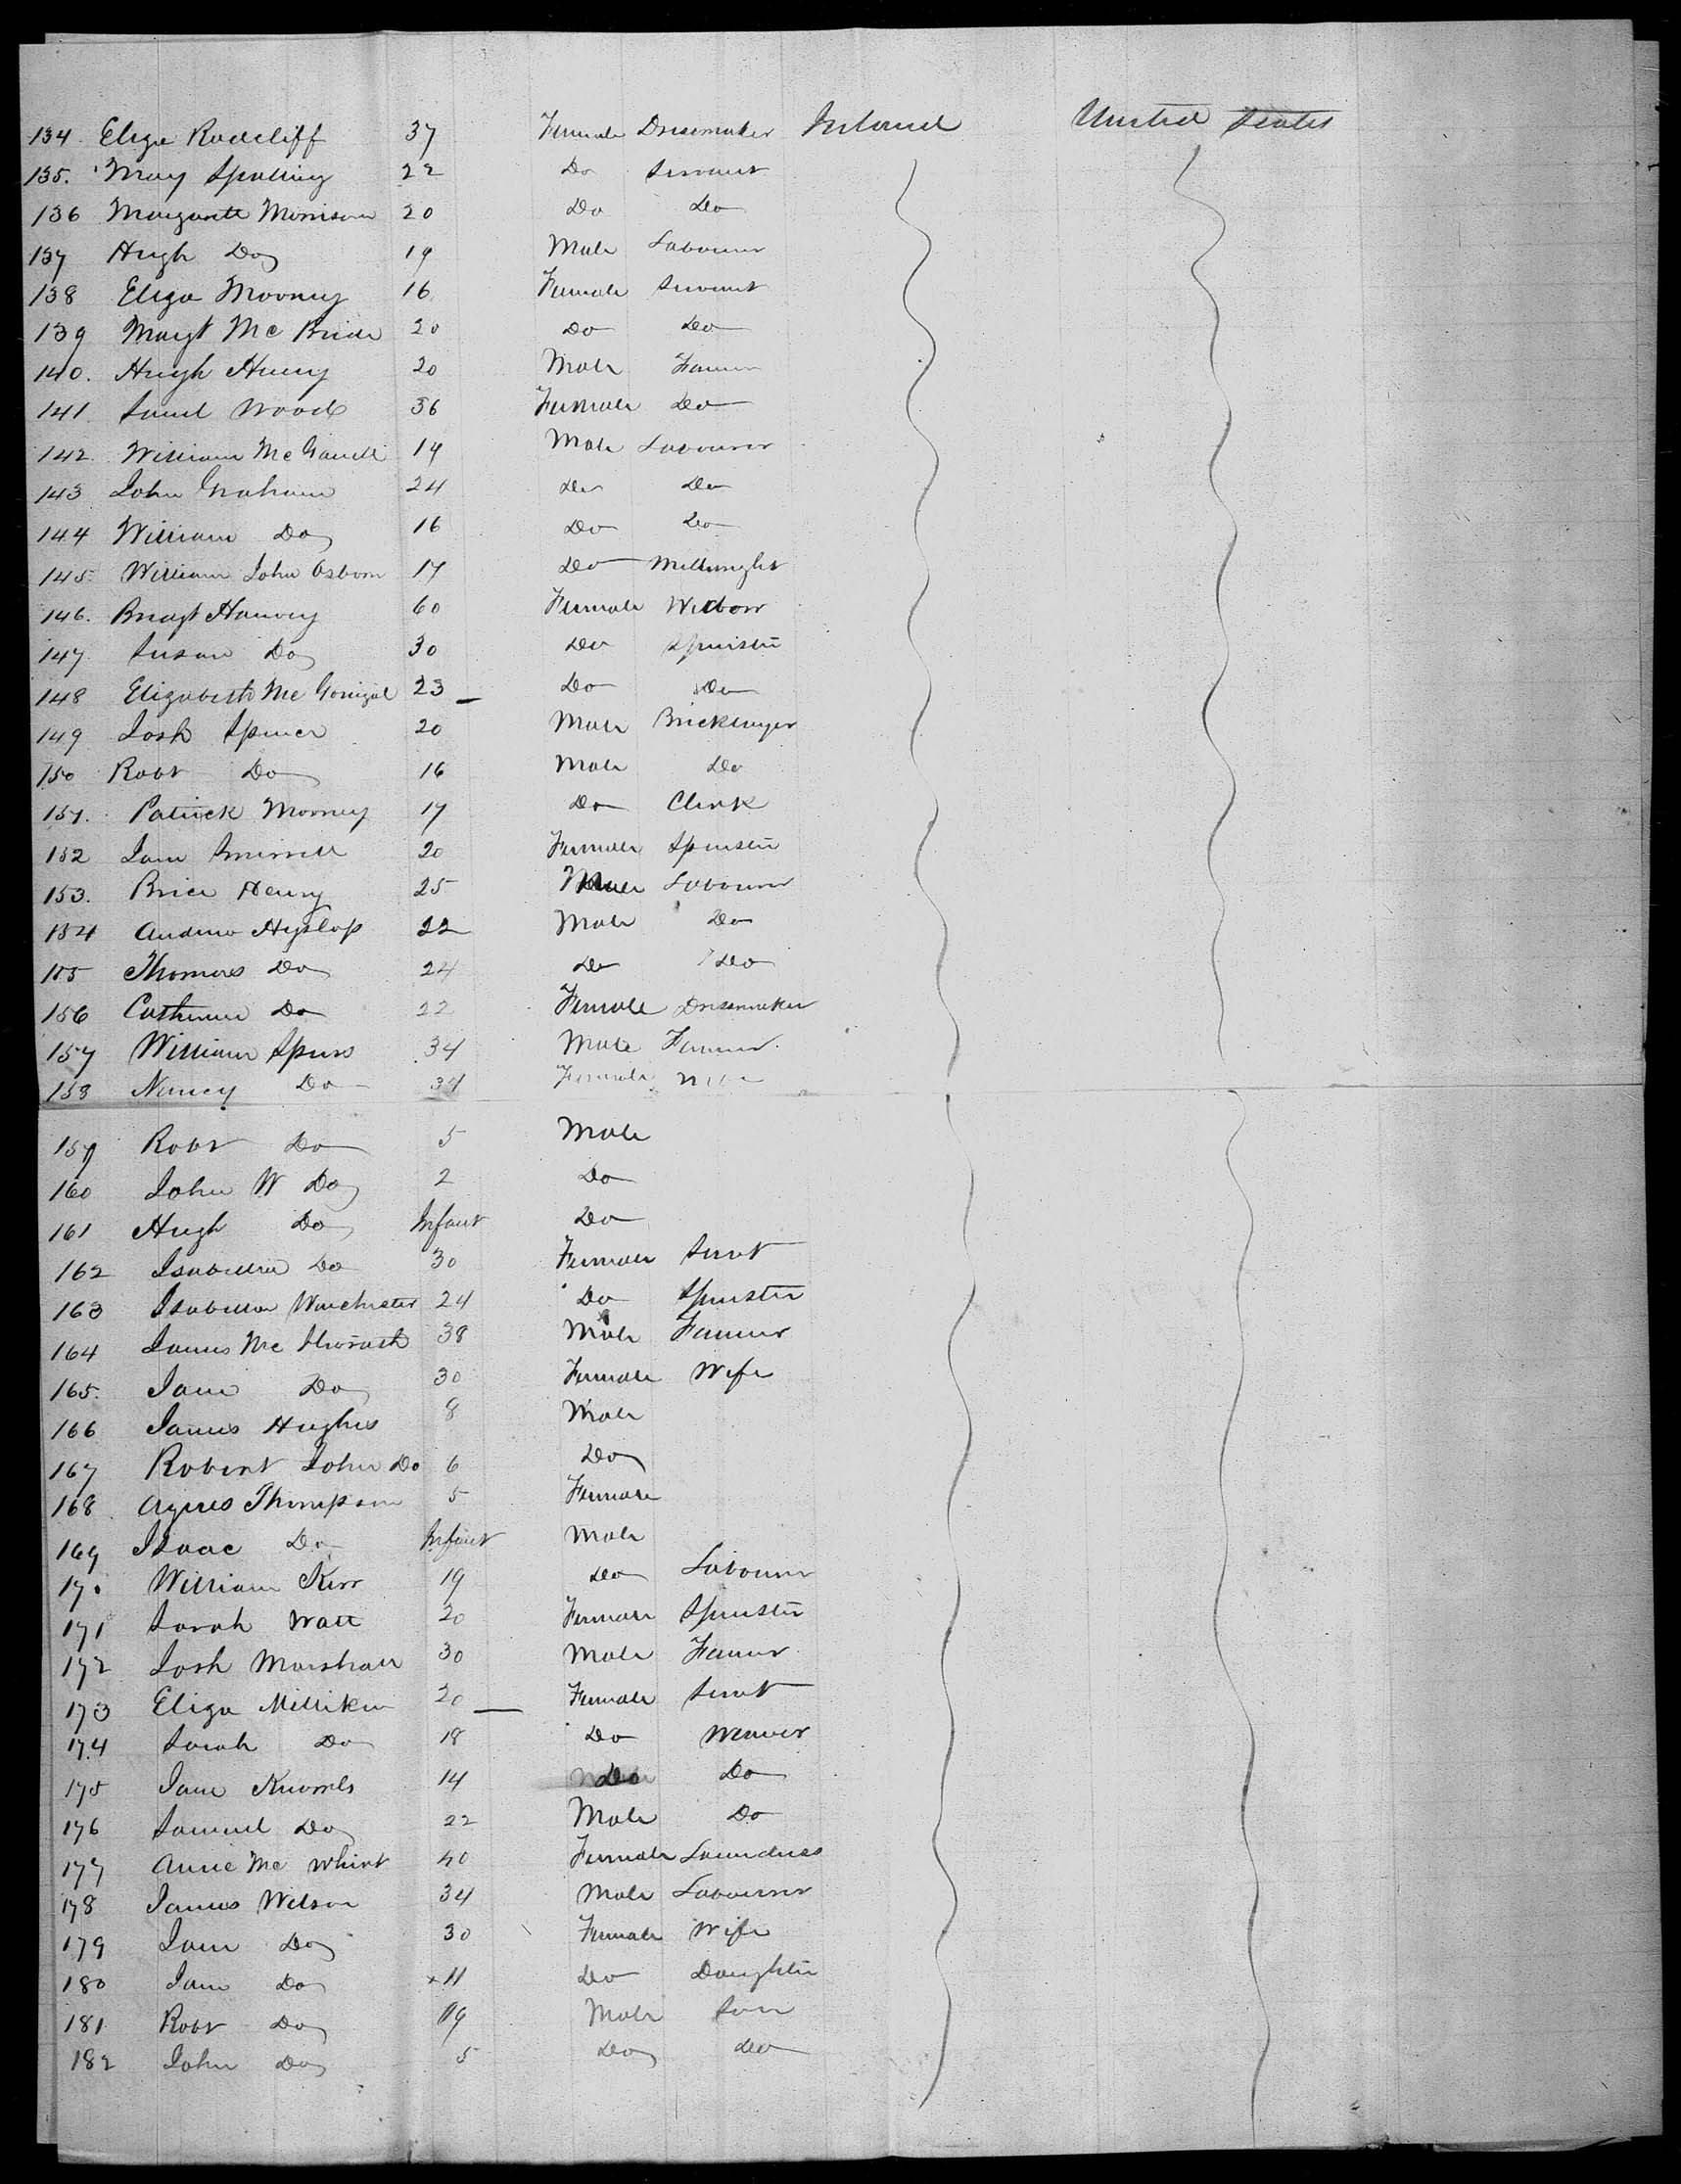 134 Eliza Radcliff 37 Female Dressmaker Ireland United States
135. Mary Spalling 22 Do Servant
136 Margarett Morrison 20 Do Do
137 Hugh Do 19 Male Labourer
138 Eliza Mooney 16 Female Servant
139 Margt Mc Bride 20 Do Do
140. Hugh Henry 20 Male Farmer
141. Saml Wood 36 Female Do
142. William 19 Male Labourer
143 John Graham 24 Do Do
144 William Do 16 Do Do
145. William John Osborn 17 Do Millwright
146. Harvey 60 Female Widow
147 Susan Do 30 Do Spinster
148 Elizabeth Mc Gonigal 23 Do Do
149 Josh Spencer 20 Male Bricklayer
150 Robt Do 16 Male Do
151. Patrick Mooney 17 Do Clerk
152 Jane 20 Female Spinster
153. Brice Henry 25 Male Labourer
154 Andrew Hyslop 22 Male Do
155 Thomas Do 24 Do Do
156 Catherine Do 22 Female Dressmaker
157 William Spiers 34 Male Farmer
158 Nancy Do 34 Female
159 Robt Do 5 Male
160 John W Do 2 Do
161 Hugh Do Infant Do
162 Isabella Do 30 Female Servt
163 Isabella Winchester 24 Do Spinster
164 James Mc 38 Male Farmer
165. Jane Do 30 Female Wife
166 James Hughes 8 Male
167 Robert John Do 6 Do
168 Agnes Thompson 5 Female
169 Isaac Do Infant Male
170 William Kerr 19 Do Labourer
171 Sarah Watt 20 Female Spinster
172 Josh Marshall 30 Male Farmer
173 Eliza Milliken 20 Female Servt
174 Sarah Do 18 Do Weaver
175 Jane 14 Do Do
176 Samuel Do 22 Male Do
177 Annie Mc Whirt 40 Female Laundress
178 James Wilson 34 Male Labourer
179 Jane Do 30 Female Wife
180 Jane Do 11 Do Daughter
181 Robt Do 9 Male Son
182 John Do 5 Do Do